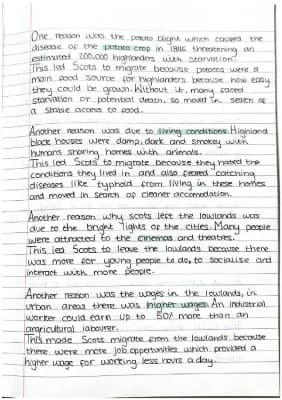 One reason was the potato blight which caused the
disease of the potato crop in 1846 threatening an
estimated 200,000 highlanders with starvation.
This led Scots to migrate because potatoes were a
main food source for highlanders because how easy
they could be grown. Without it, many faced
starvation or potential death, so moved in search of
a stable access to food.
Another reason was due to living conditions. Highland
black houses were damp, dark and smokey with
humans sharing homes with animals.
This led Scots to migrate because they hated the
conditions they lived in and also feared catching
diseases like typhoid from living in these homes
and moved in search of cleaner accomodation.
Another reason why scots left the lowlands was
due to the bright lights of the cities. Many people
were attracted to the cinemas and theatres.
This led Scots to leave the lowlands because there
was more for young people to do, to socialise and
interact with more people.
Another reason was the wages in the lowlands, in
urban areas there was higher wages. An industrial
worker could earn up to 50% more than an
argricultural labourer.
This made Scots migrate from the lowlands because
there were more job opportunities which provided a
higher wage for working less hours a day.